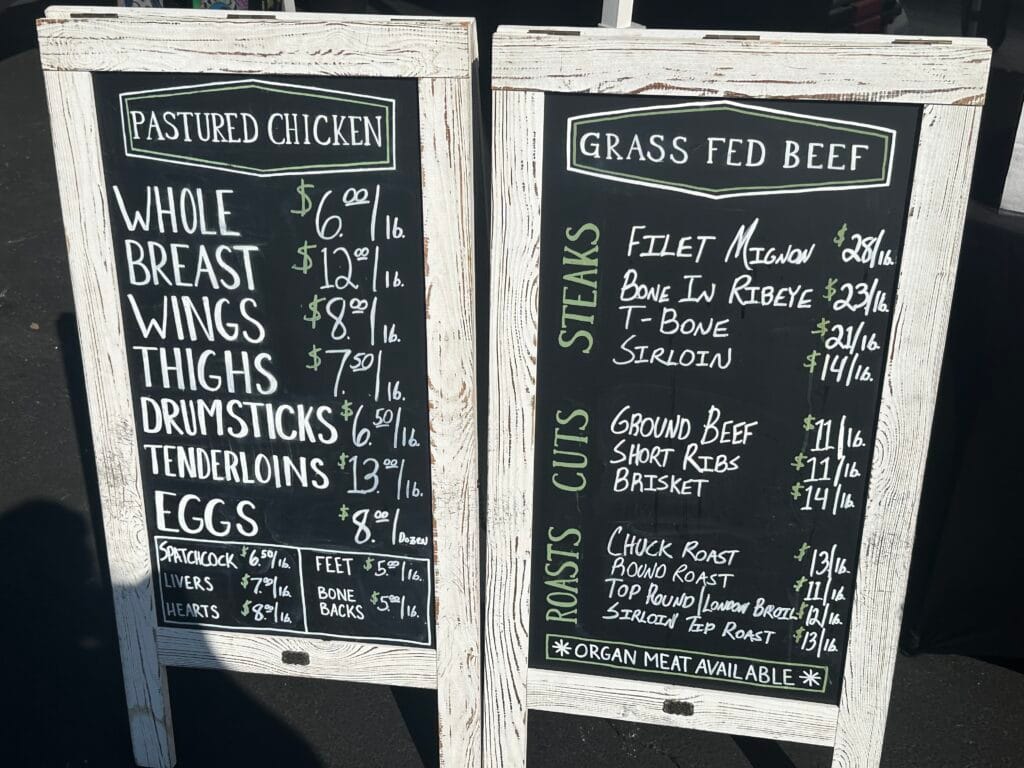 PASTURED CHICKEN
WHOLE $6.00/lb.
BREAST $12.00/lb.
WINGS $8.00/lb.
THIGHS $7.50/lb.
DRUMSTICKS $6.50/lb.
TENDERLOINS $13.00/lb.
EGGS $8.00/DOZEN
SPATCHCOCK $6.50/lb.
LIVERS $7.00/lb.
HEARTS $8.00/lb.
FEET $5.00/lb.
BONE
BACKS $5.00/lb.
GRASS FED BEEF
STEAKS
FILET MIGNON $28/lb.
BONE IN RIBEYE $23/lb.
T-BONE $21/lb.
SIRLOIN $14/lb.
CUTS
GROUND BEEF $11/lb.
SHORT RIBS $11/lb.
BRISKET $14/lb.
ROASTS
CHUCK ROAST $13/lb.
ROUND ROAST $11/lb.
TOP ROUND/LONDON BROIL $12/lb.
SIRLOIN TIP ROAST $13/lb.
*ORGAN MEAT AVAILABLE*